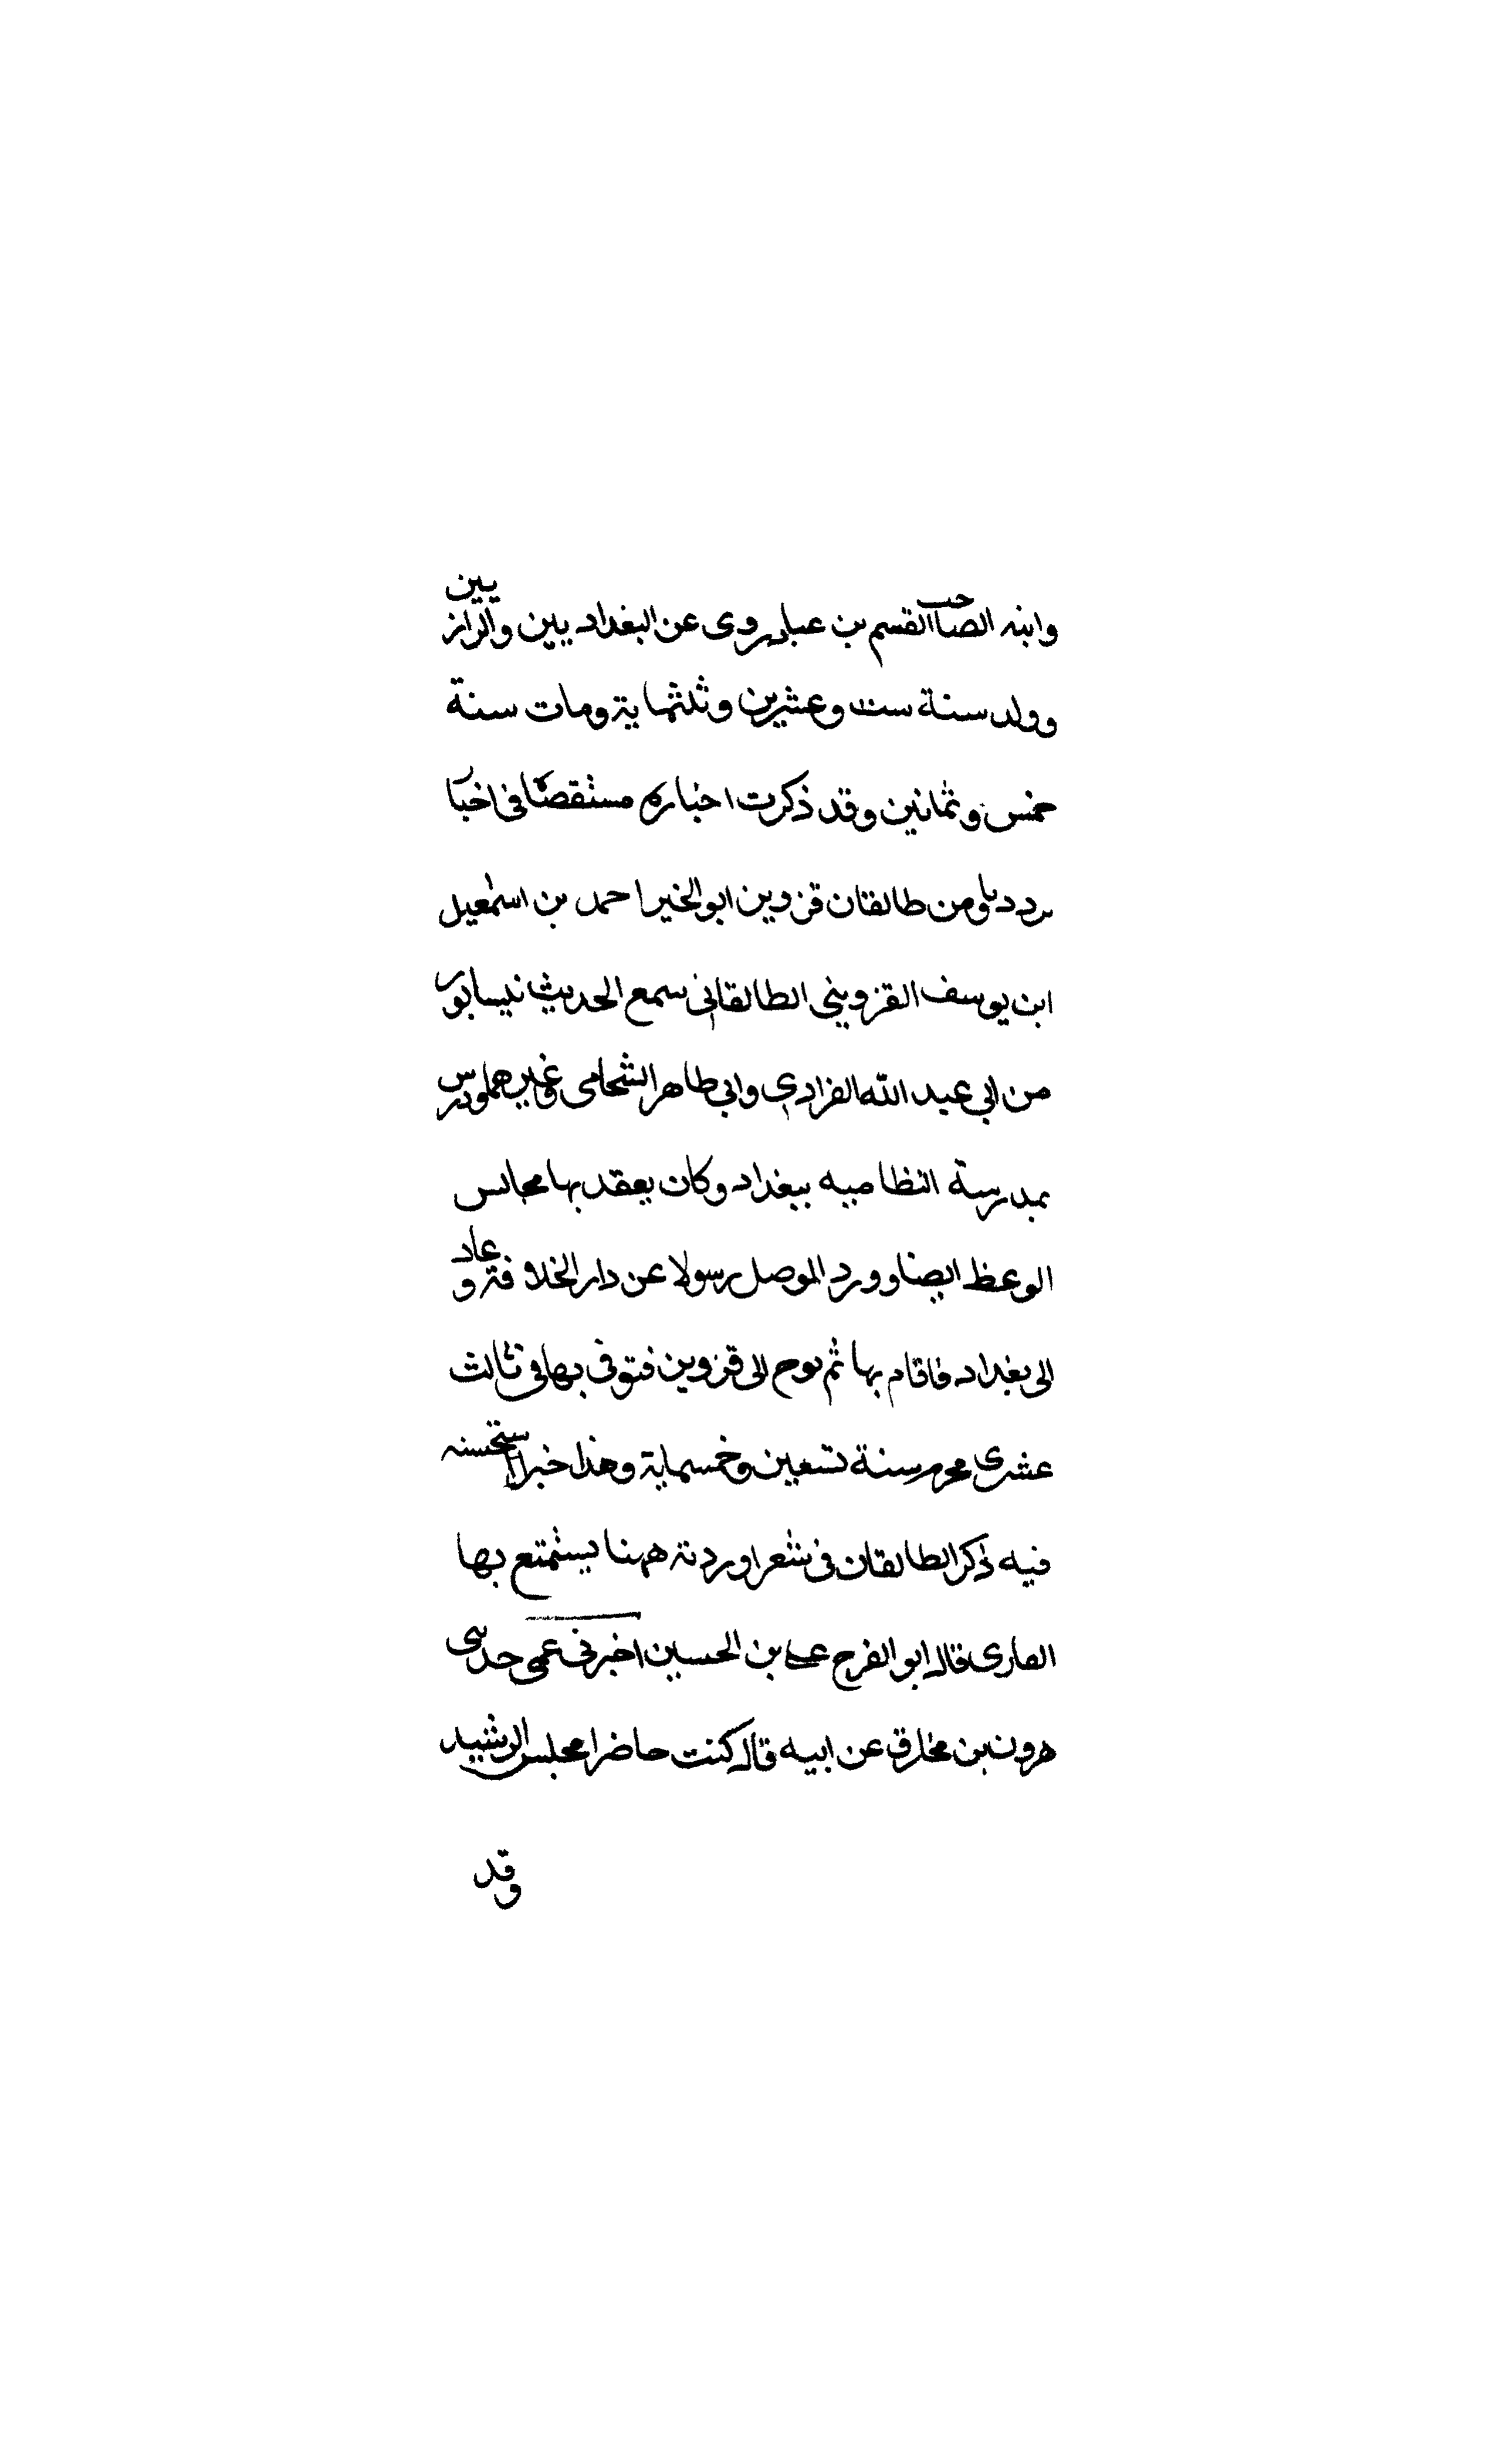 وابنه الصاحب القسم بن عباد روى عن البغداديين والرازيين
وولد سنة ست وعشرين وثلثماية ومات سنة
خمس وثمانين وقد ذكرت اخباره مستقصاة فى اخبا
ومن طالقان قزوين ابو الخير احمد بن اسمعيل
ابن يوسف القزوينى الطالقانى سمع الحديث نيسابور
من ابى عبد الله الفزادى وابى طاهر الشحامى وغيرهما ودرس
بمدرسة النظاميه ببغداد وكان يعقد بها مجالس
الوعظ ايضا وورد الموصل رسولا عن دار الخلافة وعاد
الى بغداد فاقام بها ثم توجه الى قزوين فتوفى بها فى ثالث
عشرى محرم سنة تسعين وخمسماية وهذا خبر استحسنه
فيه ذكر الطالقان فى شعر اوردته ههنا يستمتع بها
القارى قال ابو الفرج على بن الحسين اخبرنى عمى حدثنى
هرون بن مخارق عن ابيه قال كنت حاضرا مجلس الرشيد
وقد